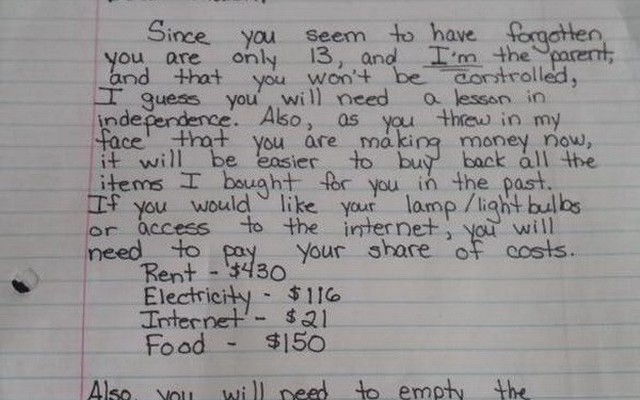 Since you seem to have forgotten
you are only 13, and I'm the parent,
and that you won't be controlled,
I guess you will need a lesson in
independence. Also, as you threw in my
face that you are making money now,
it will be easier to buy back all the
items I bought for you in the past.
If you would like your lamp/lightbulbs
or access to the internet, you will
need to pay your share of costs.
Rent - $430
Electricity - $116
Internet - $21
Food - $150
Also you will need to empty the